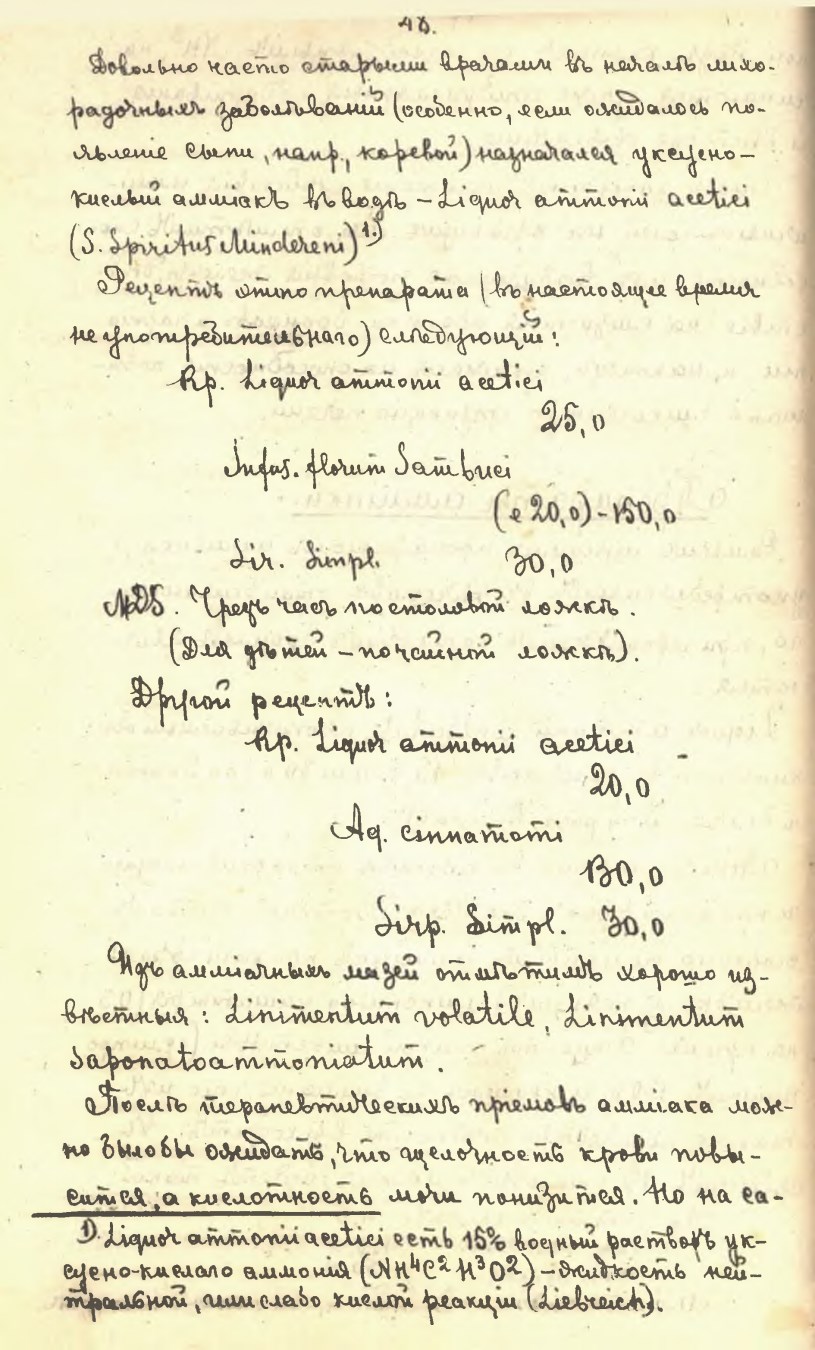 48.
Довольно часто старыми врачами въ началѣ лихо-
радочныхъ заболѣваній (особенно, если ожидалось по-
явленіе сыпи, напр., коревой) назначался уксусно-
кислый амміакъ въ водѣ – Liquor ammonii acetici
(S. Spiritus Mindereri) 1.)
Рецептъ этого препарата (въ настоящее время
не употребительнаго) слѣдующій:
Rp. Liquor ammonii acetici
25,0
Infus. florum Sambuci
(e 20,0) - 150,0
Sir. Simpl. 30,0
MDS. Чрезъ часъ по столовой ложкѣ.
(Для дѣтей – по чайной ложкѣ).
Другой рецептъ:
Rp. Liquor ammonii acetici
20,0
Aq. cinnamomi
130,0
Sirp. Simpl. 30,0
Изъ амміачныхъ мазей отмѣтимъ хорошо из-
вѣстныя: Linimentum volatile, Linimentum
saponatoammoniatum.
Послѣ терапевтическихъ пріемовъ амміака мож-
но было бы ожидать, что щелочность крови повы-
сится, а кислотность мочи понизится. Но на са-
1). Liquor ammonii acetici есть 15% водный растворъ ук-
сусно-кислаго аммонія (NH⁴C²H³O²) – жидкость ней-
тральной, или слабо кислой реакціи (Liebreich).